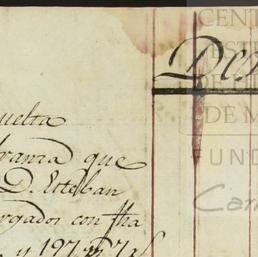 vuelta
branza que
D. Esteban
rgados con fha
y 197
De
CENT
DE M
UND
Car